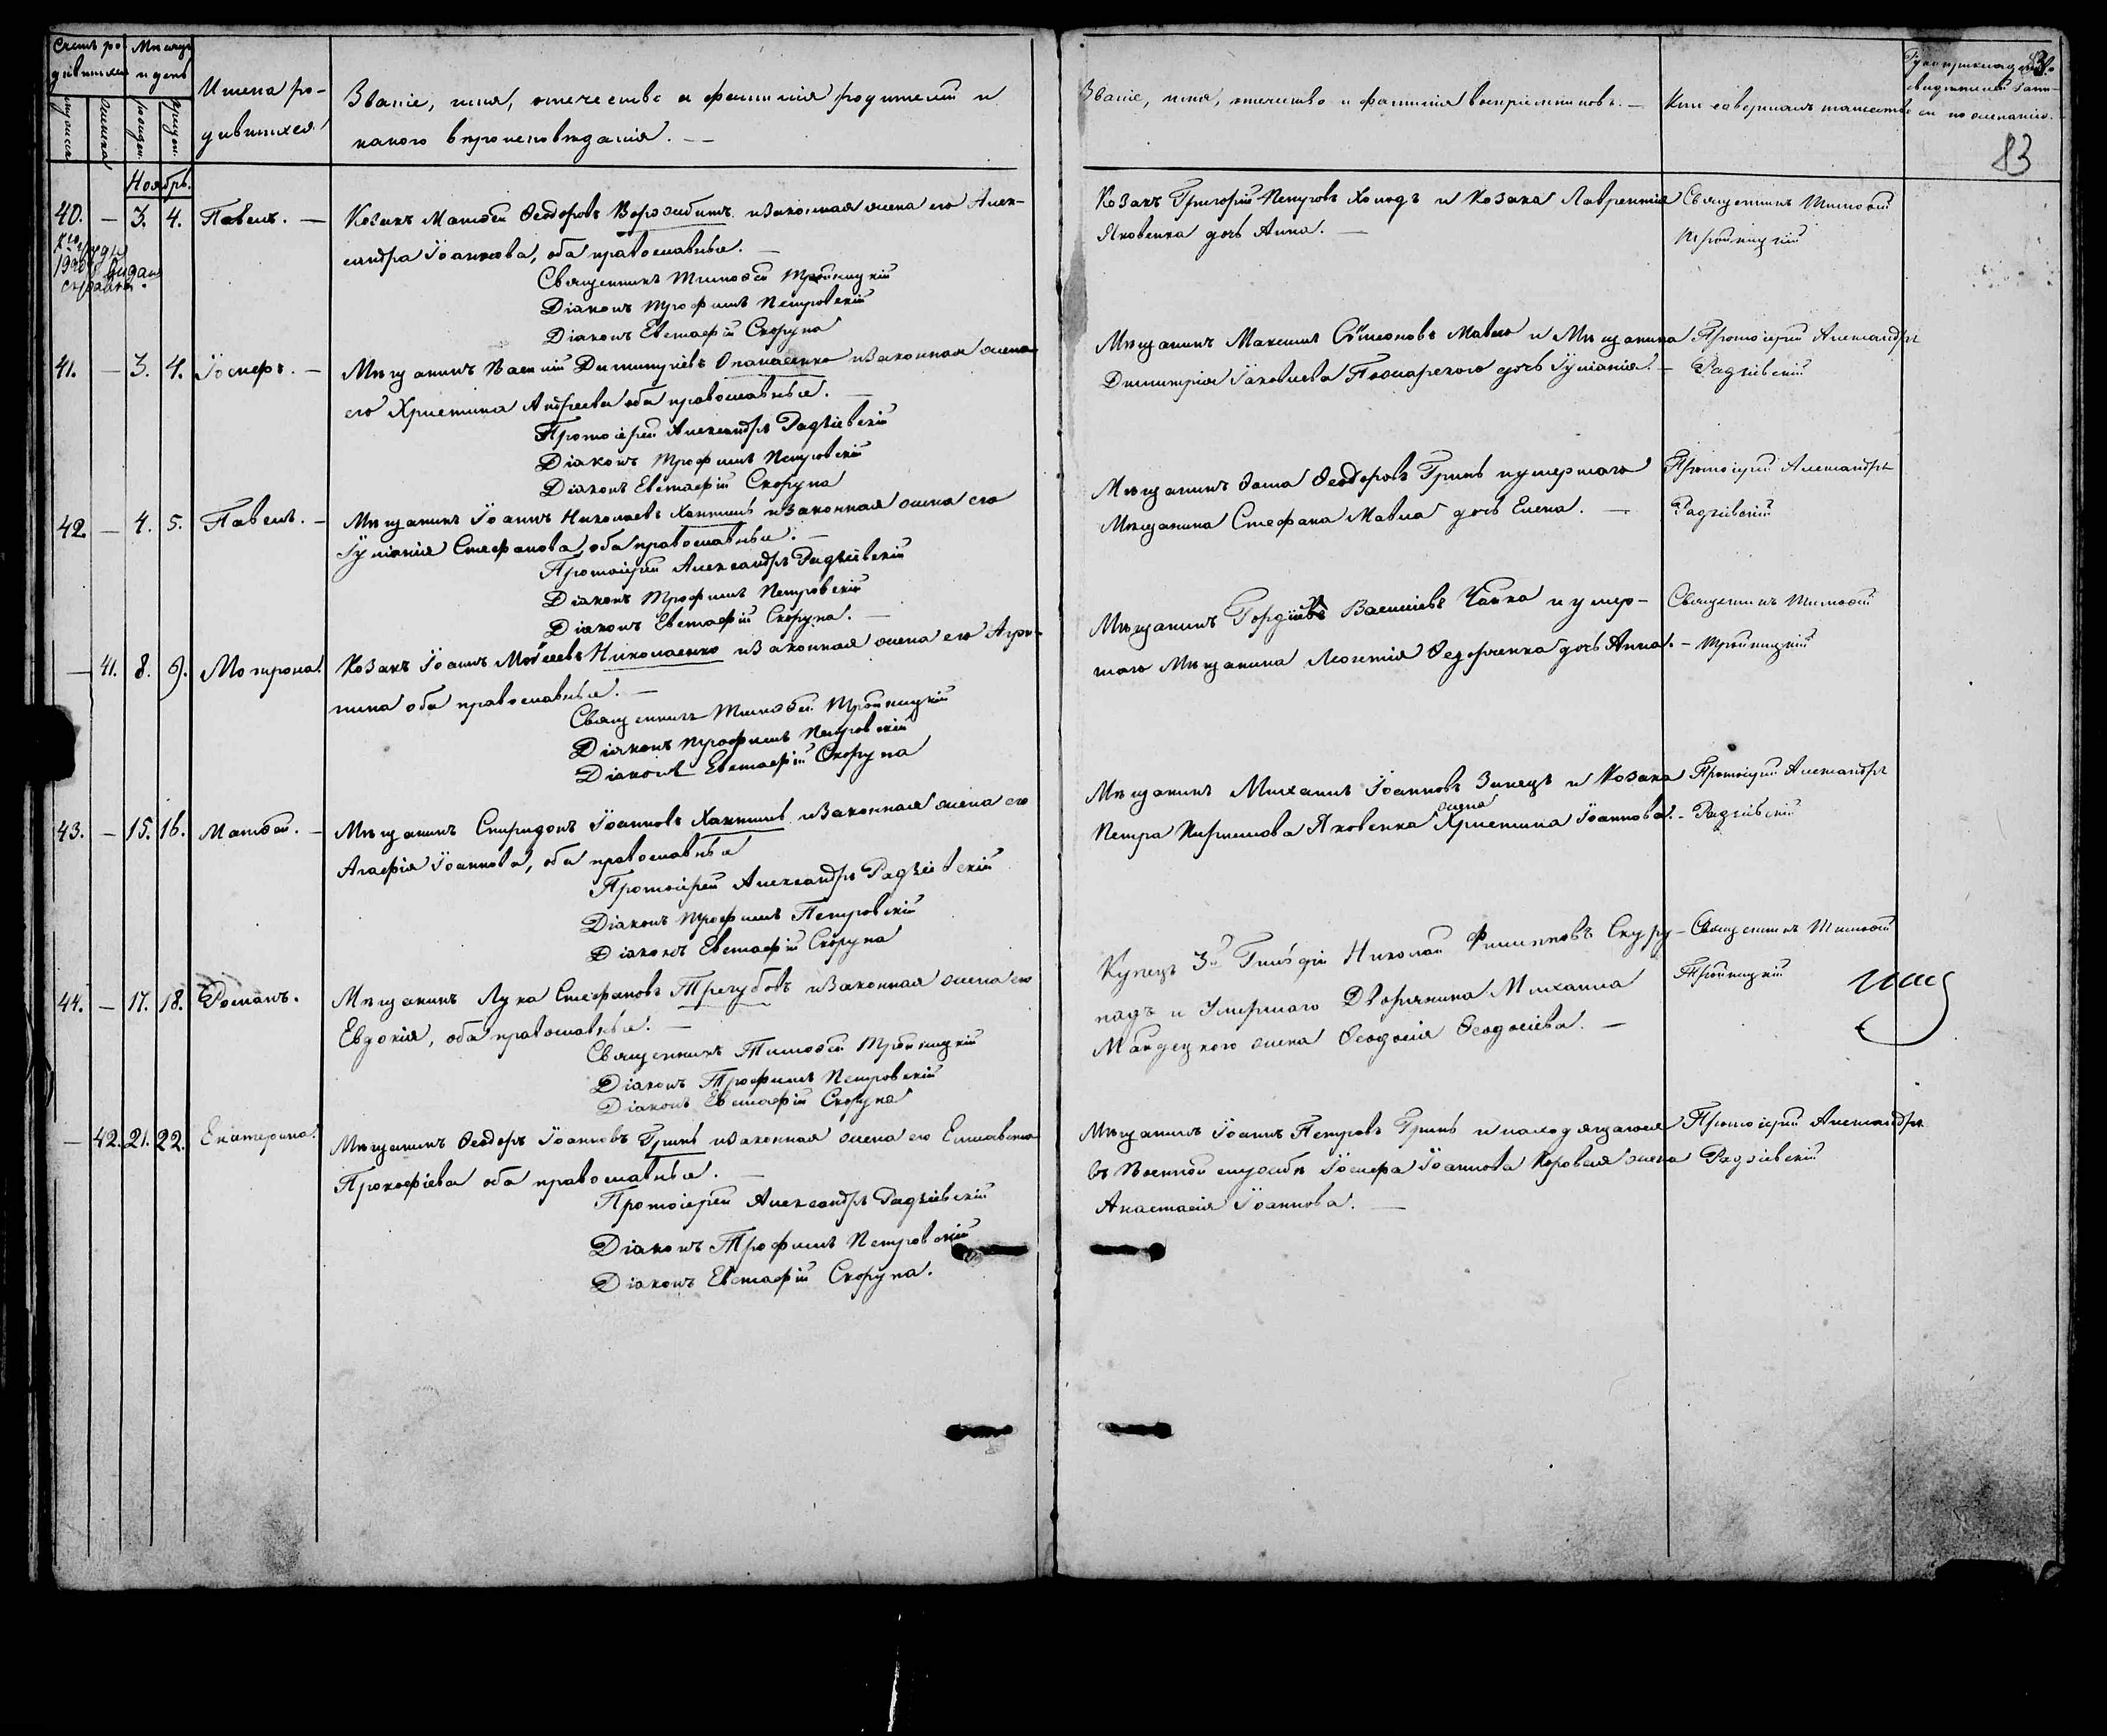 Счетъ ро-
дившихся
Мѣсяцъ
и день
мужеска
женска
рожден.
крещен.
Имена ро-
дившихся.
Званіе, имя, отечество и фамилія родителей и
какого вѣроисповѣданія. —
Ноябрь.
40. — 3. 4. Павелъ. — Козакъ Матѳей Ѳеодоровъ Ворожбитъ и законная жена его Алек-
сандра Іоаннова, оба православные. —
1906 года
выдана
справка.
Священникъ Тимоѳей Тройницкій
Діаконъ Трофимъ Петровскій
Діаконъ Евстафій Скорупа
41. — 3. 4. Іосифъ. — Мѣщанинъ Василій Димитріевъ Опанасенко и законная жена
его Христина Андреева оба православные. —
Протоіерей Александръ Радзіевскій
Діаконъ Трофимъ Петровскій
Діаконъ Евстафій Скорупа
42. — 4. 5. Павелъ. — Мѣщанинъ Іоаннъ Николаевъ Хактинъ и законная жена его
Іуліанія Стефанова, оба православные. —
Протоіерей Александръ Радзіевскій
Діаконъ Трофимъ Петровскій
Діаконъ Евстафій Скорупа. —
— 41. 8. 9. Мотрона. Козакъ Іоаннъ Моѵсеевъ Николаенко и законная жена его Агри-
пина оба православные. —
Священникъ Тимоѳей Тройницкій
Діаконъ Трофимъ Петровскій
Діаконъ Евстафій Скорупа
43. — 15. 16. Матѳей. — Мѣщанинъ Спиридонъ Іоанновъ Хактинъ и законная жена его
Агафія Іоаннова, оба православные
Протоіерей Александръ Радзіевскій
Діаконъ Трофимъ Петровскій
Діаконъ Евстафій Скорупа
44. — 17. 18. Романъ. Мѣщанинъ Лука Стефановъ Трегубовъ и законная жена его
Евдокія, оба православные. —
Священникъ Тимоѳей Тройницкій
Діаконъ Трофимъ Петровскій
Діаконъ Евстафій Скорупа
— 42. 21. 22. Екатерина. Мѣщанинъ Ѳеодоръ Іоанновъ Гринь и законная жена его Елисавета
Прокофіева оба православные. —
Протоіерей Александръ Радзіевскій
Діаконъ Трофимъ Петровскій
Діаконъ Евстафій Скорупа.
Званіе, имя, отечество и фамилія воспріемниковъ. —
Кто совершалъ таинство
Рукоприкладство
свидѣтелей запи-
си по желанію.
83
Козакъ Григорій Петровъ Холодъ и Козака Лаврентія
Яковенка дочь Анна. —
Священникъ Тимоѳей
Тройницкій
Мѣщанинъ Максимъ Сѵмеоновъ Мавла и Мѣщанина
Димитрія Іаковлева Пожарского дочь Іуліанія. —
Протоіерей Александръ
Радзіевскій
Мѣщанинъ Ѳома Ѳеодоровъ Гринь и умершаго
Мѣщанина Стефана Мавла дочь Елена. —
Протоіерей Александръ
Радзіевскій
Мѣщанинъ Гордій Васильевъ Чайка и умер-
шаго Мѣщанина Леонтія Ѳедорченка дочь Анна. —
Священникъ Тимоѳей
Тройницкій
Мѣщанинъ Михаилъ Іоанновъ Зинецъ и Козака
Петра Кириллова Яковенка жена Христина Іоаннова. —
Протоіерей Александръ
Радзіевскій
Купецъ 3й Гильдіи Николай Филипповъ Скуру-
падъ и Умершаго Дворянина Михаила
Майдецкого жена Ѳеодосія Ѳеодосіева. —
Священникъ Тимоѳей
Тройницкій
Мѣщанинъ Іоаннъ Петровъ Гринь и находящагося
въ Военной службѣ Іосифа Іоаннова Коровая жена
Анастасія Іоаннова. —
Протоіерей Александръ
Радзіевскій